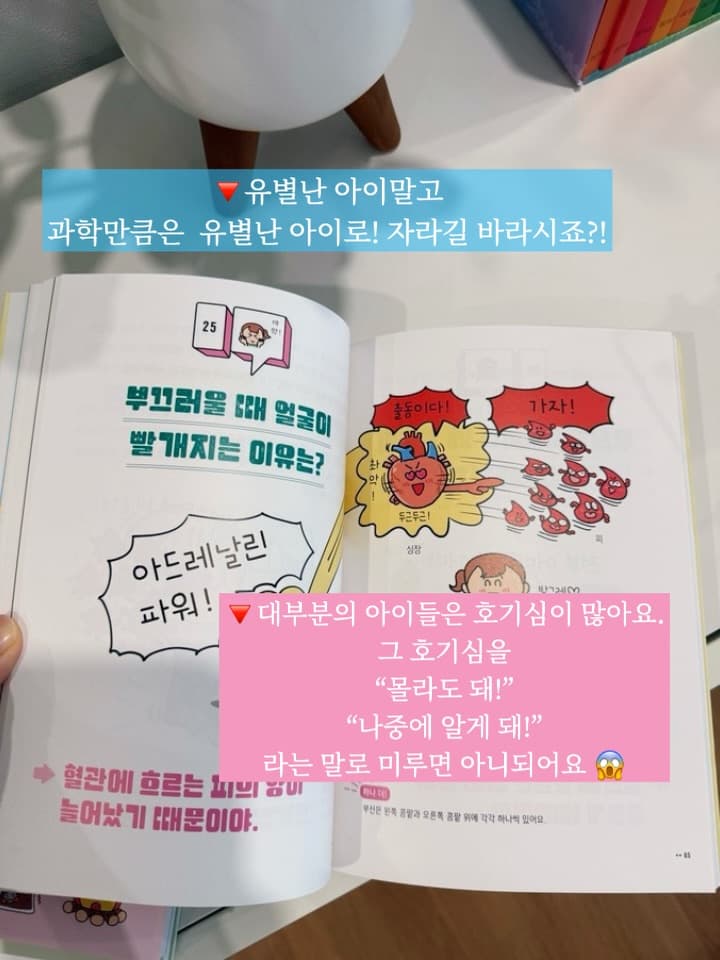 🔻유별난 아이말고
과학만큼은 유별난 아이로! 자라길 바라시죠?!
25
부끄러울 때 얼굴이
빨개지는 이유는?
아드레날린
파워!
혈관에 흐르는 피의 양이
늘어났기 때문이야.
출동이다!
가자!
좌악!
두근두근!
심장
피
🔻대부분의 아이들은 호기심이 많아요.
그 호기심을
“몰라도 돼!”
“나중에 알게 돼!”
라는 말로 미루면 아니되어요 😱
하나 더!
부신은 왼쪽 콩팥과 오른쪽 콩팥 위에 각각 하나씩 있어요.
65